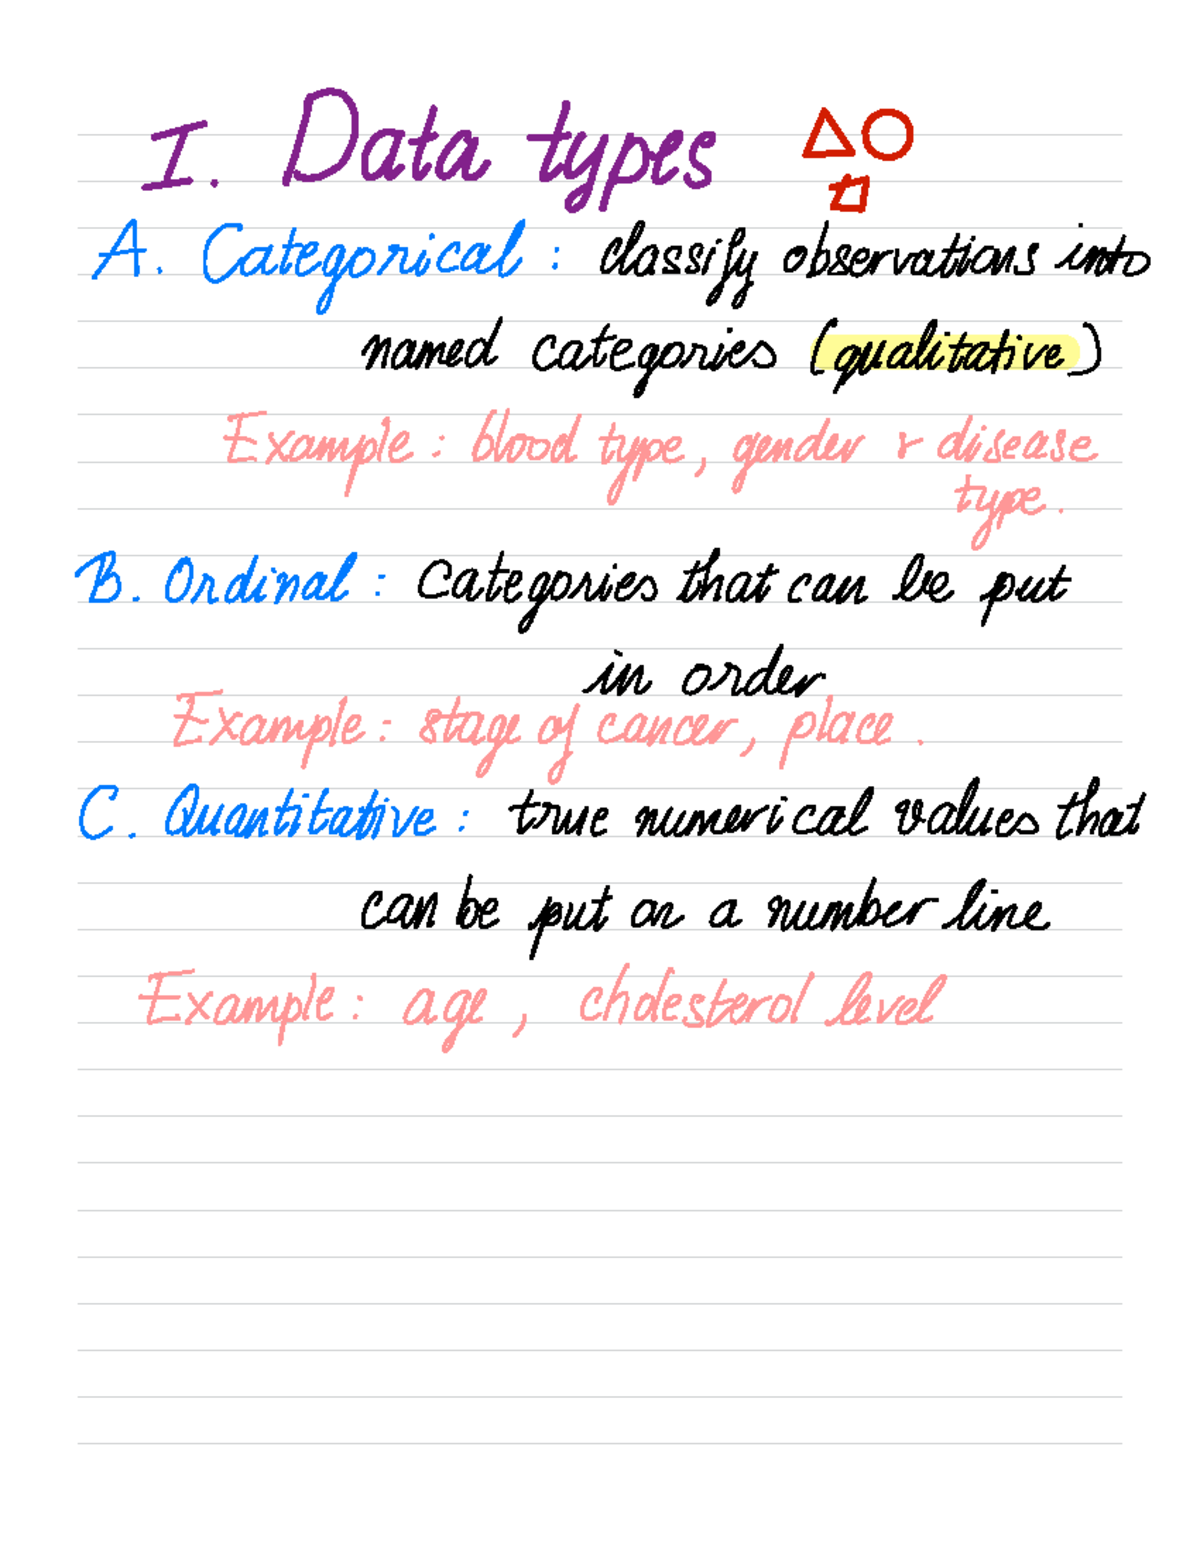 I. Data types
A. Categorical : classify observations into
named categories (qualitative)
Example : blood type, gender & disease
type.
B. Ordinal : Categories that can be put
in order
Example : stage of cancer, place.
C. Quantitative : true numerical values that
can be put on a number line
Example : age, cholesterol level